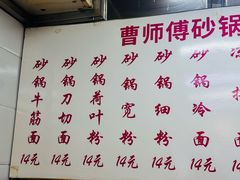 曹师傅砂锅
砂锅牛筋面 14元
砂锅刀切面 14元
砂锅荷叶粉 14元
砂锅宽粉 14元
砂锅细粉 14元
砂锅冷面 14元
砂